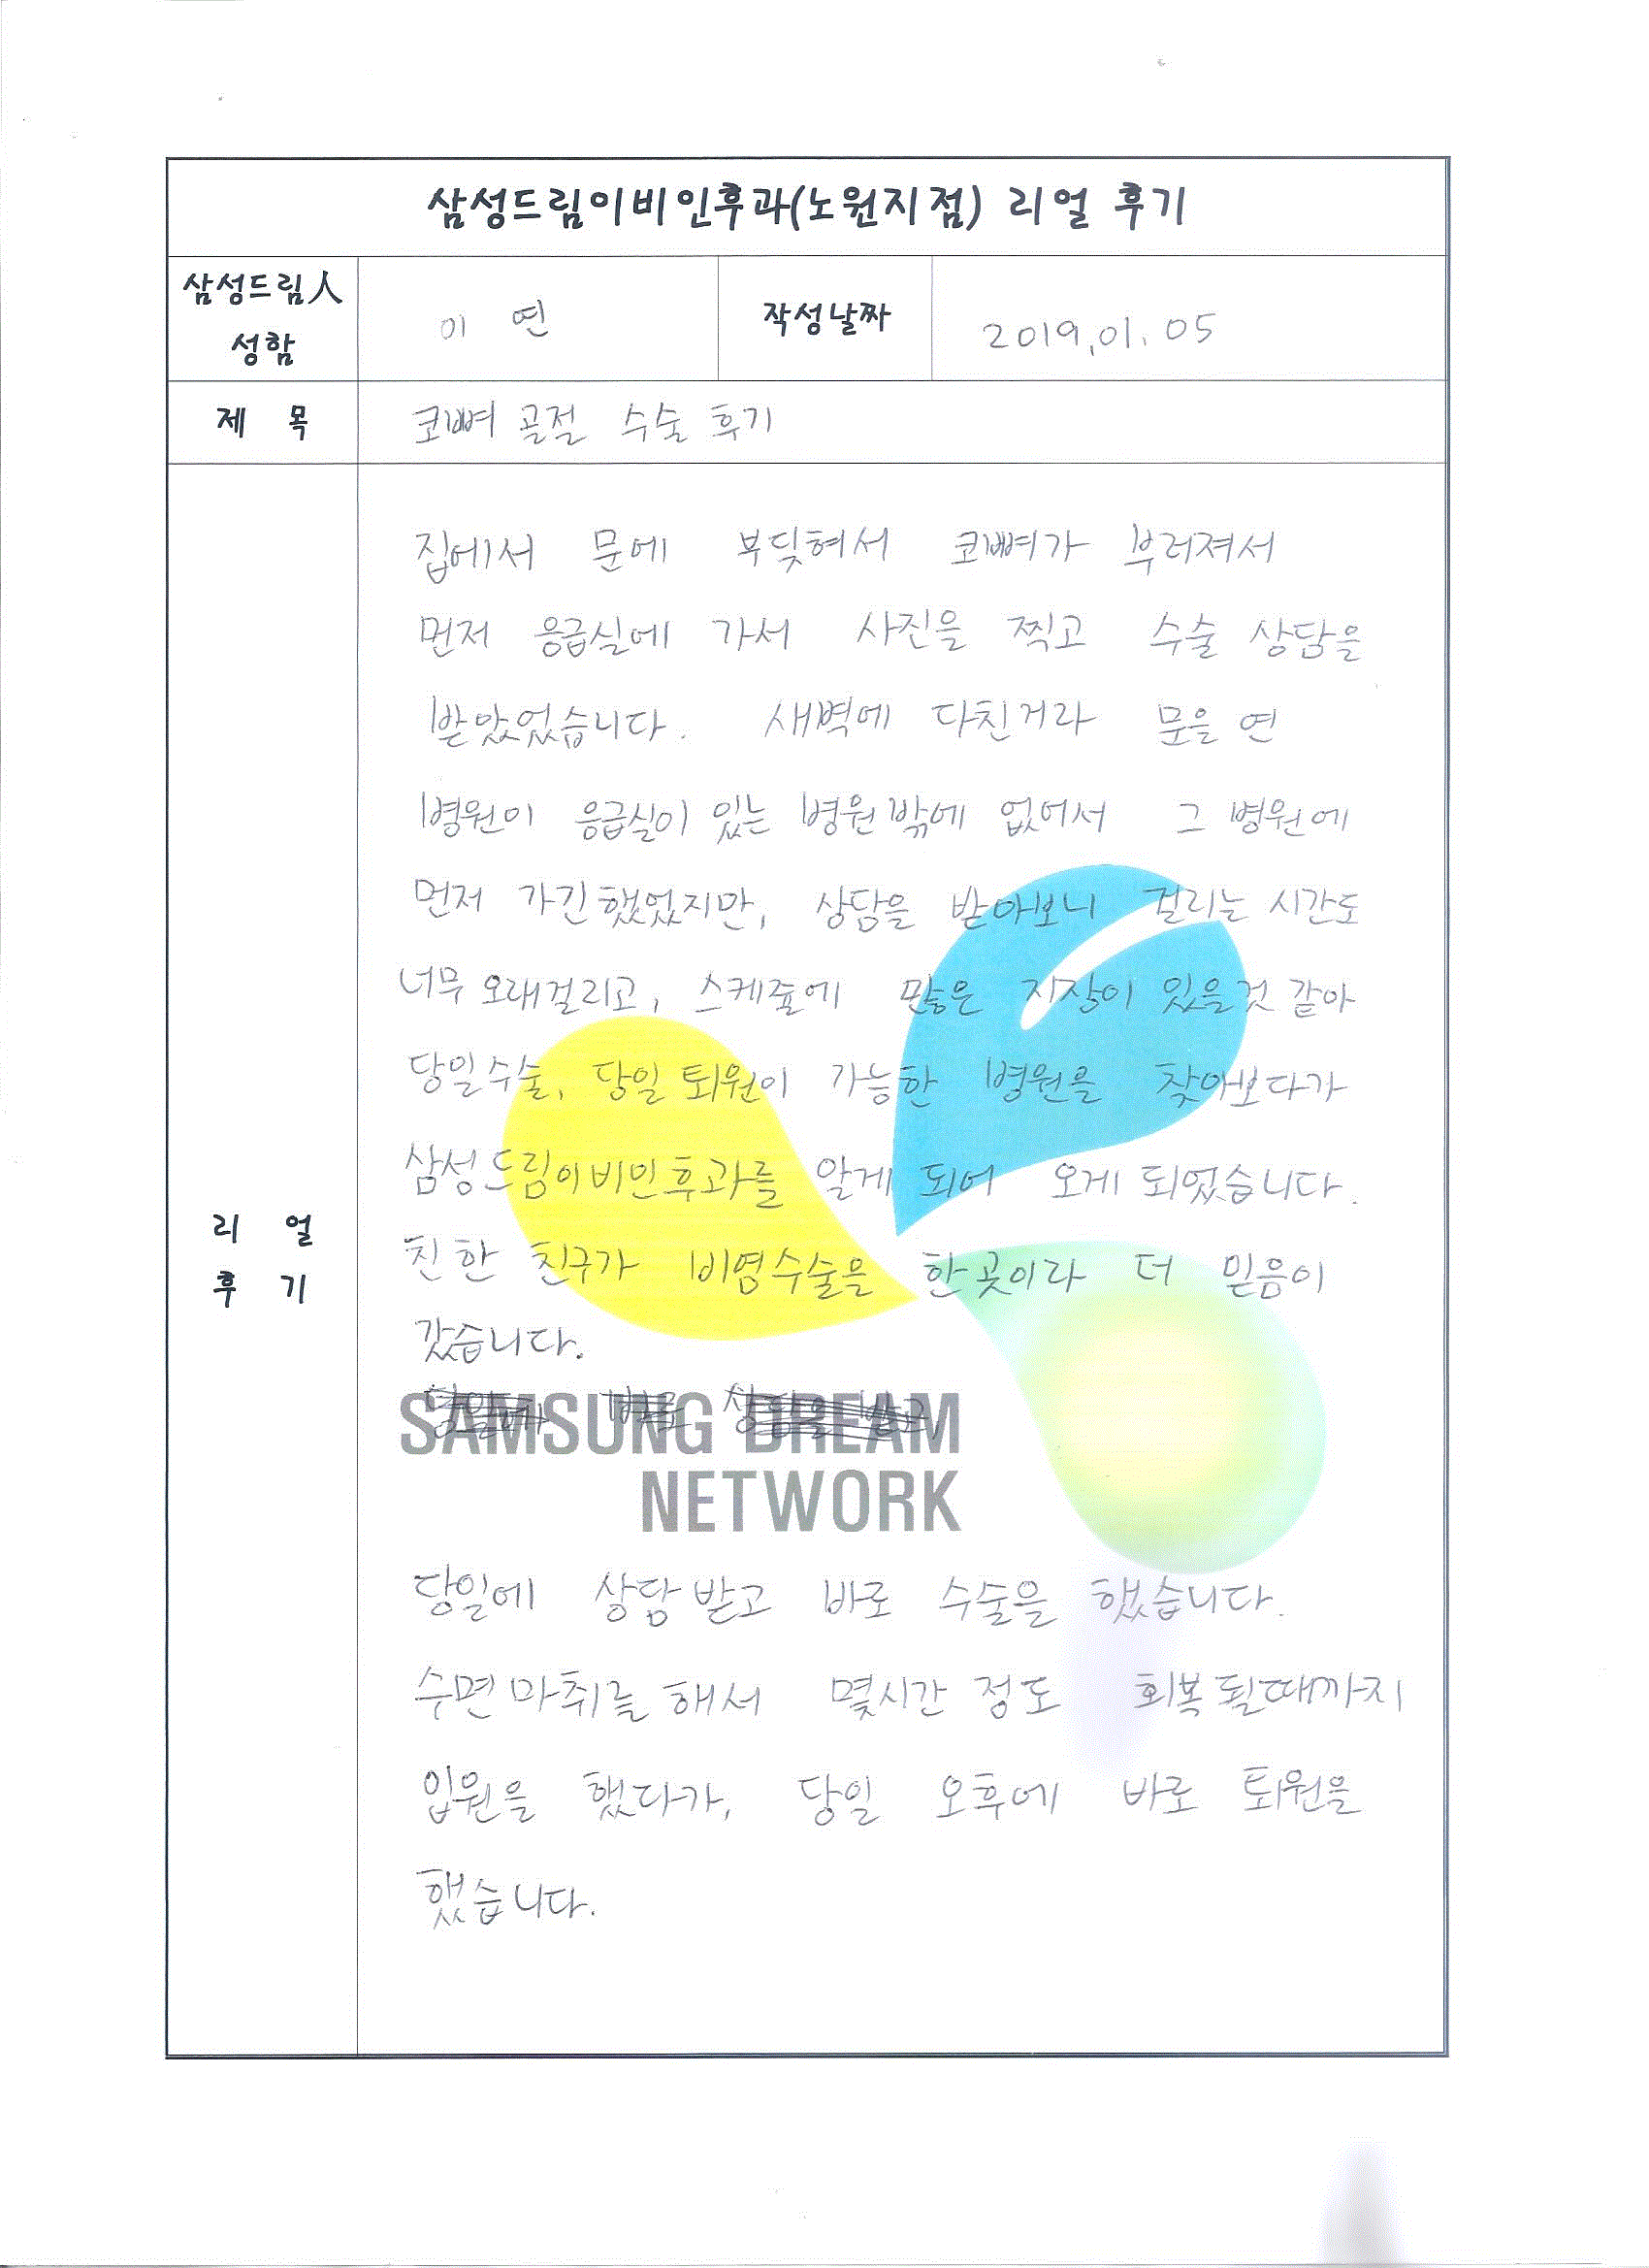 삼성드림이비인후과(노원지점) 리얼 후기
삼성드림人
성함
이 연
작성날짜
2019.01.05
제 목
코뼈 골절 수술 후기
리 얼
후 기
집에서 문에 부딪혀서 코뼈가 부러져서
먼저 응급실에 가서 사진을 찍고 수술 상담을
받았었습니다. 새벽에 다친거라 문을 연
병원이 응급실이 있는 병원밖에 없어서 그 병원에
먼저 가긴했었지만, 상담을 받아보니 걸리는 시간도
너무 오래걸리고, 스케쥴에 많은 지장이 있을것 같아
당일수술, 당일 퇴원이 가능한 병원을 찾아보다가
삼성드림이비인후과를 알게 되어 오게 되었습니다.
친한 친구가 비염수술을 한곳이라 더 믿음이
갔습니다.
SAMSUNG DREAM
NETWORK
당일에 상담받고 바로 수술을 했습니다.
수면마취를 해서 몇시간 정도 회복될때까지
입원을 했다가, 당일 오후에 바로 퇴원을
했습니다.